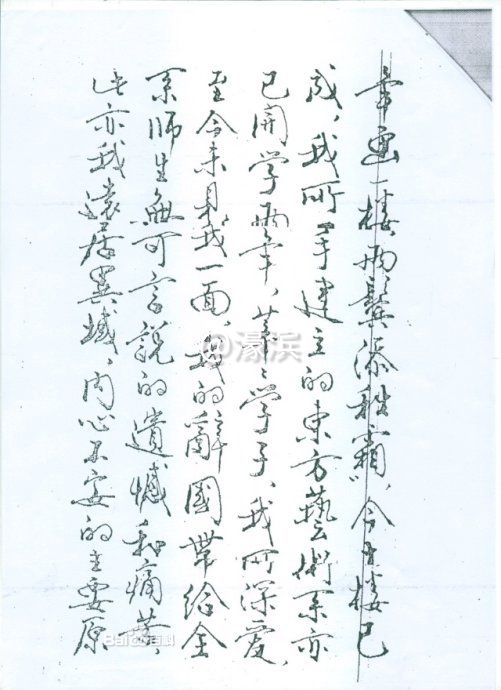 幸画一楼，两鬓添秋霜”，今日楼已
成，我所一手建立的东方藝術系亦
已開学兩年，莘莘学子，我所深愛，
至今未見我一面，我的辭國帶给全
系师生無可言說的遺憾和痛苦
此亦我遠居異域，内心不安的主要原
@濠浜
Baidu百科